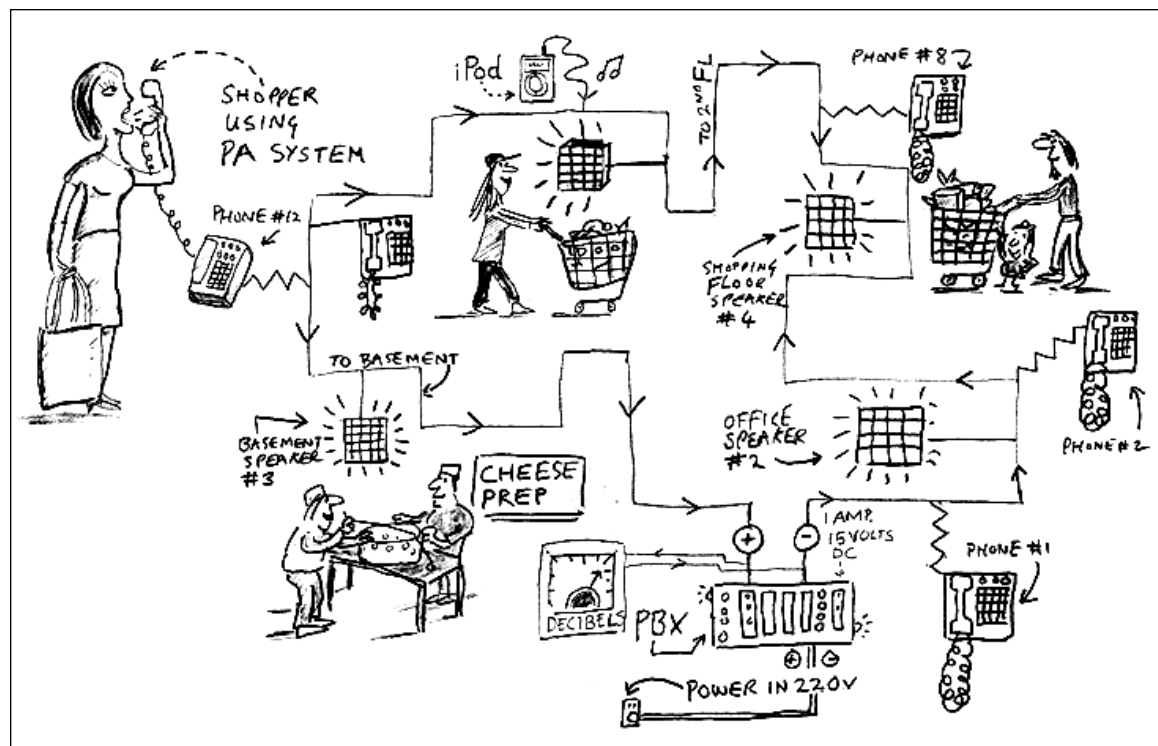 SHOPPER
USING
PA SYSTEM
iPod
TO 2ND FL
PHONE #8
PHONE #12
SHOPPING
FLOOR
SPEAKER
#4
TO BASEMENT
BASEMENT
SPEAKER
#3
CHEESE
PREP
OFFICE
SPEAKER
#2
PHONE #2
+
-
1 AMP.
15 VOLTS
DC
PHONE #1
DECIBELS
PBX
+ -
POWER IN 220V